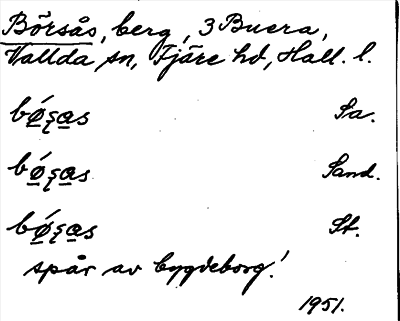 Börsås, berg, 3 Buera,
Vallda sn, Fjäre hd, Hall. l.
bǿʂas Sa.
bǿʂas Sand.
bǿʂas St.
spår av bygdeborg!
1951.